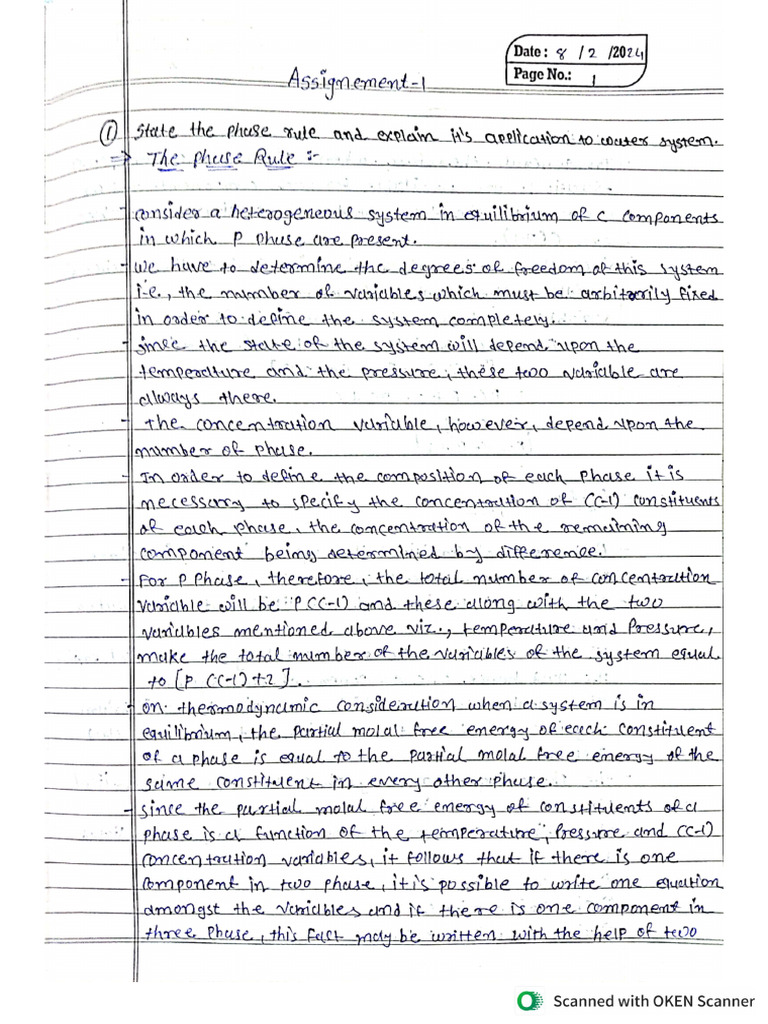 Date: 8 / 2 /2024
Page No.: 1
Assignement-1
① State the phase rule and explain it's application to water system.
⇒ The Phase Rule :-
- consider a heterogeneous system in equilibrium of c components
in which P phase are present.
- we have to determine the degrees of freedom of this system
i.e., the number of variables which must be arbitrarily fixed
in order to define the system completely.
- since the state of the system will depend upon the
temperature and the pressure, these two variable are
always there.
- The concentration variable, however, depend upon the
number of phase.
- In order to define the composition of each Phase it is
necessary to specify the concentration of (C-1) constituents
of each phase, the concentration of the remaining
component being determined by difference.
- For P Phase, therefore, the total number of concentration
variable will be P(C-1) and these along with the two
variables mentioned above viz., temperature and Pressure,
make the total number of the variables of the system equal
to [P (C-1)+2].
- on thermodynamic consideration when a system is in
equilibrium, the partial molal free energy of each constituent
of a phase is equal to the partial molal free energy of the
same constituent in every other phase.
- since the partial molal free energy of constituents of a
phase is a function of the temperature, Pressure and (C-1)
concentration variables, it follows that if there is one
component in two phase, it is possible to write one equation
amongst the variables and if there is one component in
three Phase, this fact may be written with the help of two
Scanned with OKEN Scanner